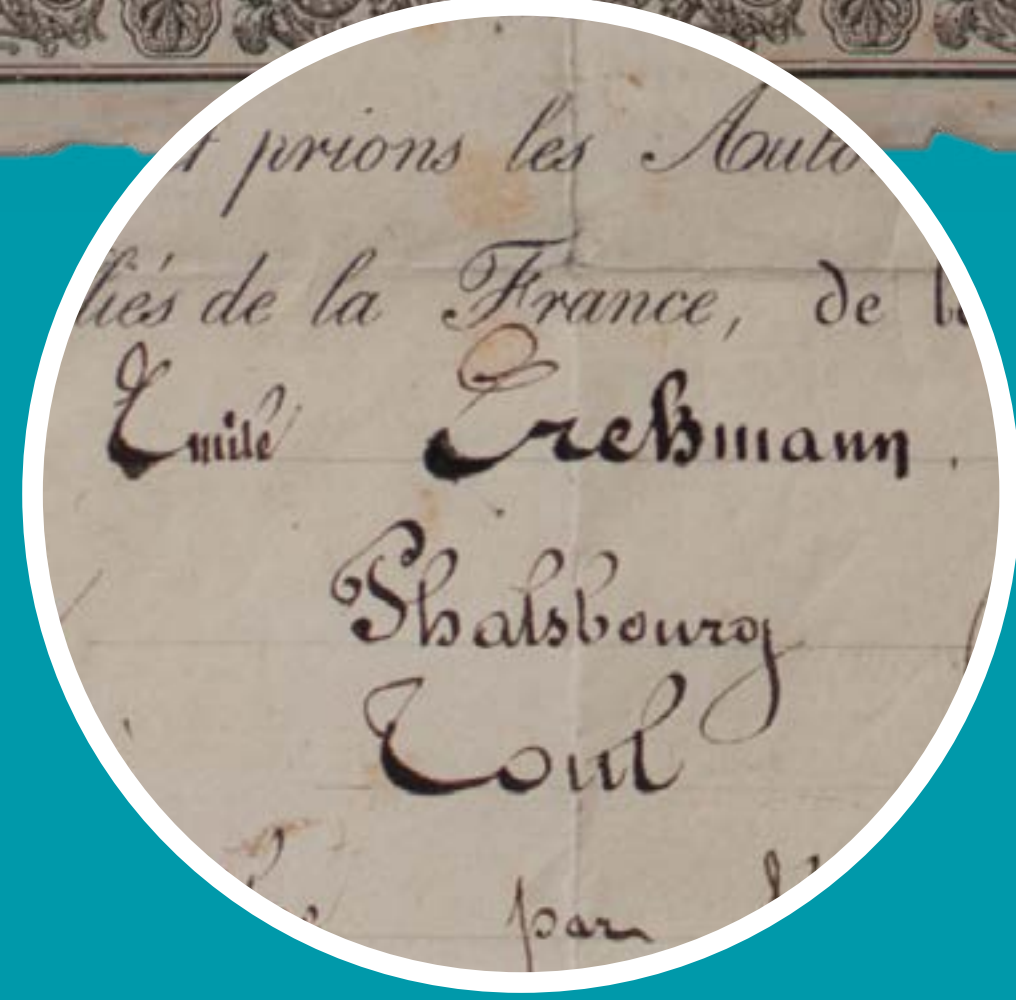 t prions les Auto
liés de la France, de le
Emile Erckmann.
Phalsbourg
Toul
par